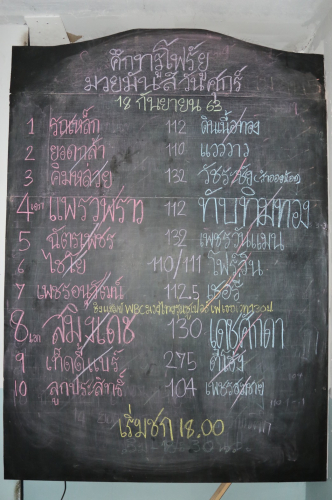 ศึกทรูโฟร์ยู
มวยมันส์วันศุกร์
18 กันยายน 63
1 รถเหล็ก 112 ดินเนื้อทอง
2 ยอดาล้า 110 แวววาว
3 คิมหลวย 132
4 เอก แพรวพราว 112 ทับทิมทอง
5 ฉัตรเพชร 132 เพชรวันแมน
6 ไชโย 110/111 โฟร์วิน
7 เพชรอนุวัฒน์ 112.5 เชอรี่
8 เอก สมิงเดช 130 เดชศักดา
9 เค็ดดี้แบร์ 275
10 ลูกประสิทธิ์ 104
เริ่มชก 18.00